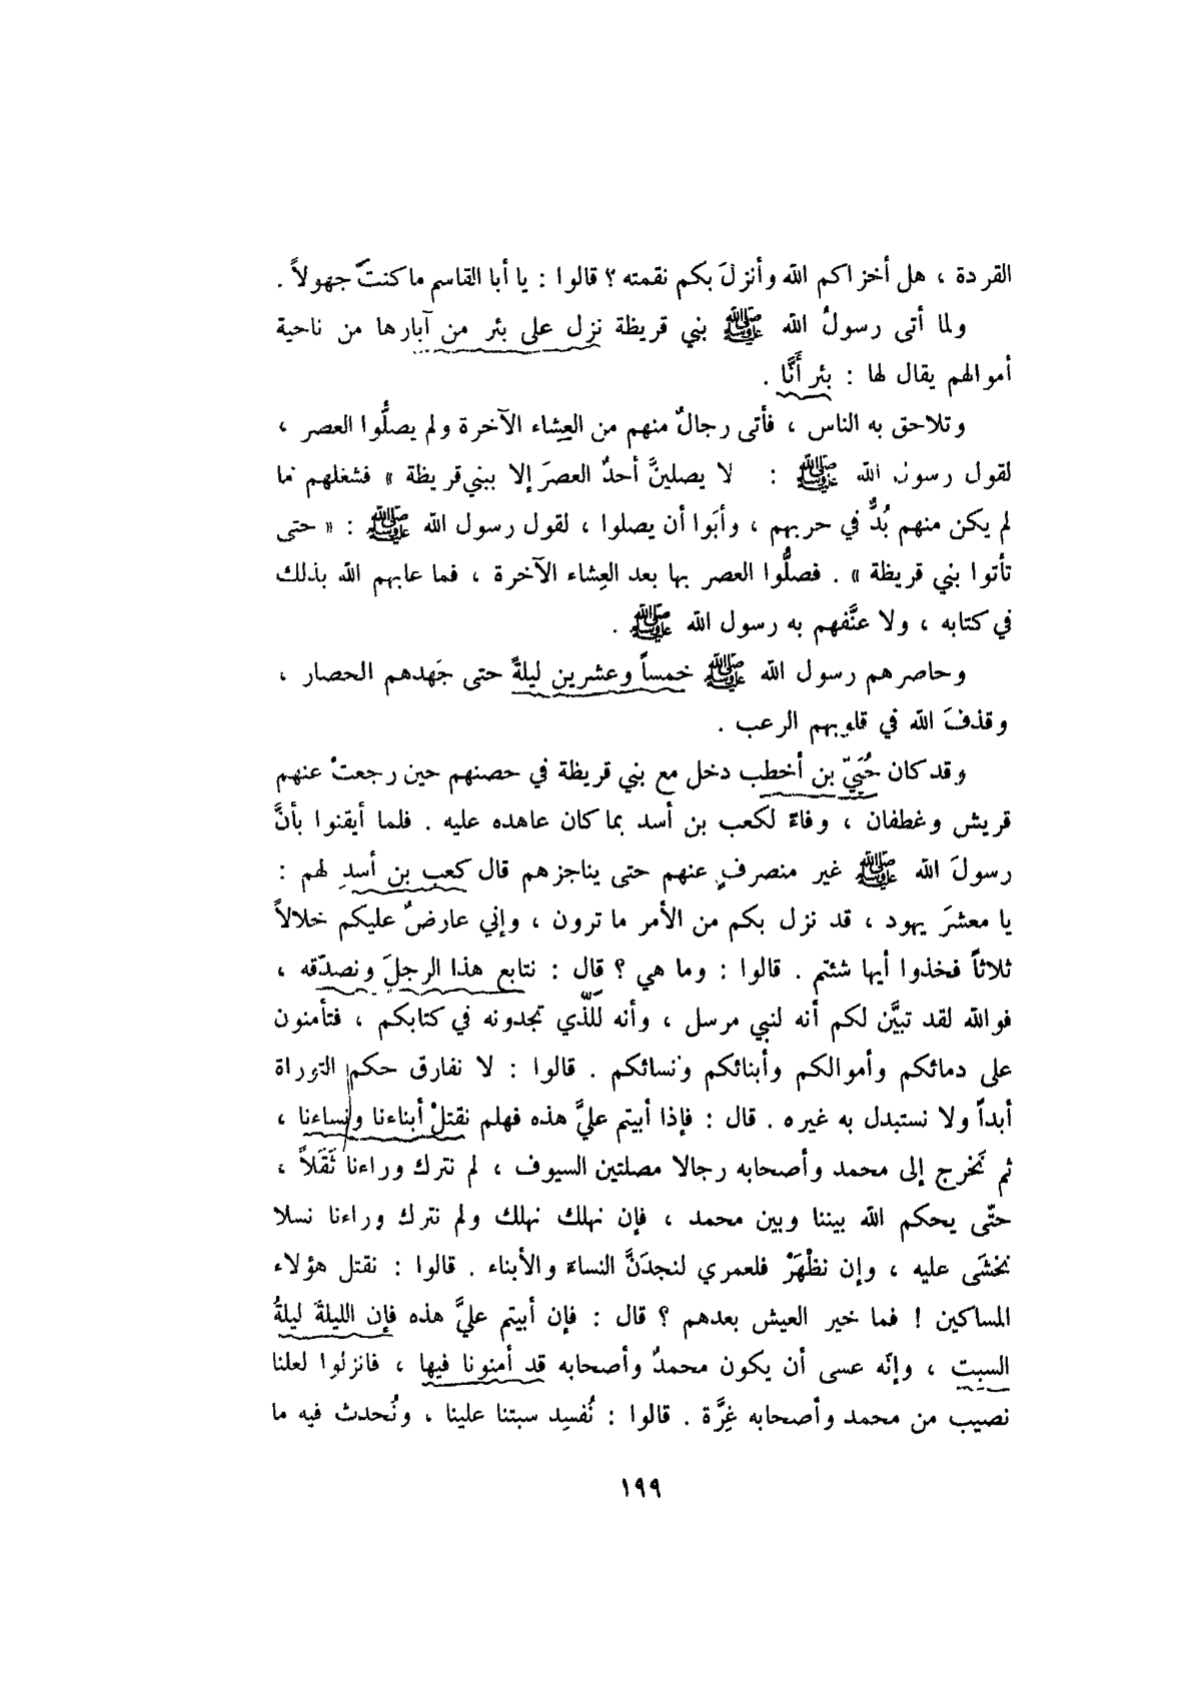 القردة ، هل أخزاكم الله وأنزلَ بكم نقمته ؟ قالوا : يا أبا القاسم ما كنتَ جهولاً .
ولما أتى رسولُ الله ﷺ بني قريظة نزل على بئر من آبارها من ناحية
أموالهم يقال لها : بئر أَنَّا .
وتلاحق به الناس ، فأتى رجالٌ منهم من العِشاء الآخرة ولم يصلُّوا العصر ،
لقول رسول الله ﷺ : لا يصلينَّ أحدٌ العصرَ إلا ببني قريظة » فشغلهم ما
لم يكن منهم بُدٌّ في حربهم ، وأبَوا أن يصلوا ، لقول رسول الله ﷺ : « حتى
تأتوا بني قريظة » . فصلُّوا العصر بها بعد العِشاء الآخرة ، فما عابهم الله بذلك
في كتابه ، ولا عنَّفهم به رسول الله ﷺ .
وحاصرهم رسول الله ﷺ خمساً وعشرين ليلةً حتى جَهدهم الحصار ،
وقذفَ الله في قلوبهم الرعب .
وقد كان حُيَيّ بن أخطب دخل مع بني قريظة في حصنهم حين رجعتْ عنهم
قريش وغطفان ، وفاءً لكعب بن أسد بما كان عاهده عليه . فلما أيقنوا بأنَّ
رسولَ الله ﷺ غير منصرفٍ عنهم حتى يناجزهم قال كعب بن أسدٍ لهم :
يا معشرَ يهود ، قد نزل بكم من الأمر ما ترون ، وإني عارضٌ عليكم خلالاً
ثلاثاً فخذوا أيها شئتم . قالوا : وما هي ؟ قال : نتابع هذا الرجلَ ونصدّقه ،
فوالله لقد تبيَّن لكم أنه لنبي مرسل ، وأنه لَلَّذي تجدونه في كتابكم ، فتأمنون
على دمائكم وأموالكم وأبنائكم ونسائكم . قالوا : لا نفارق حكم التوراة
أبداً ولا نستبدل به غيره . قال : فإذا أبيتم عليَّ هذه فهلم نقتلْ أبناءنا ونساءنا ،
ثم نَخرج إلى محمد وأصحابه رجالا مصلتين السيوف ، لم نترك وراءنا ثَقَلاً ،
حتّى يحكم الله بيننا وبين محمد ، فإن نهلك نهلك ولم نترك وراءنا نسلا
نخشَى عليه ، وإن نظْهَرْ فلعمري لنجدَنَّ النساءَ والأبناء . قالوا : نقتل هؤلاء
المساكين ! فما خير العيش بعدهم ؟ قال : فإن أبيتم عليَّ هذه فإن الليلةَ ليلةُ
السبت ، وإنّه عسى أن يكون محمدٌ وأصحابه قد أمنونا فيها ، فانزلوا لعلنا
نصيب من محمد وأصحابه غِرَّة . قالوا : نُفسِد سبتنا علينا ، ونُحدث فيه ما
١٩٩